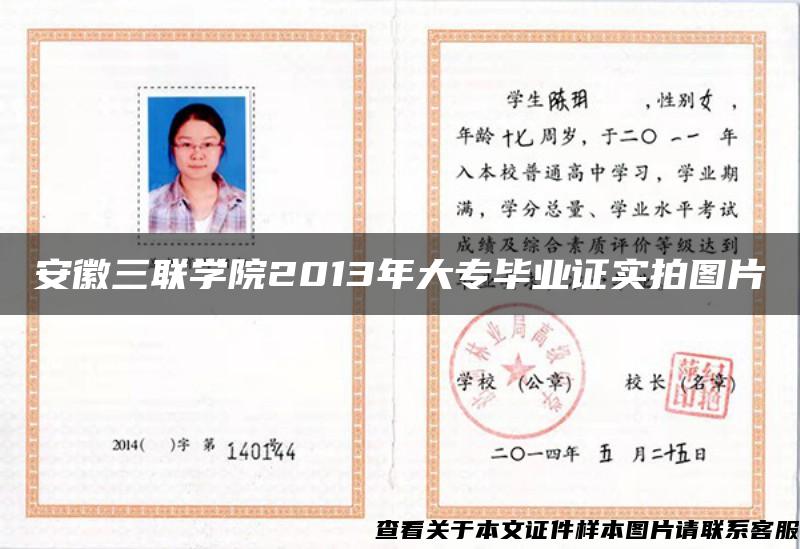 学生陈玥 ,性别女,
年龄十七周岁,于二〇一一年
入本校普通高中学习,学业期
满,学分总量、学业水平考试
成绩及综合素质评价等级达到
安徽三联学院2013年大专毕业证实拍图片
林业局高级中学
学校 (公章) 校长 (名章)
2014( )字 第 140144 号
二〇一四年 五 月二十五日
查看关于本文证件样本图片请联系客服